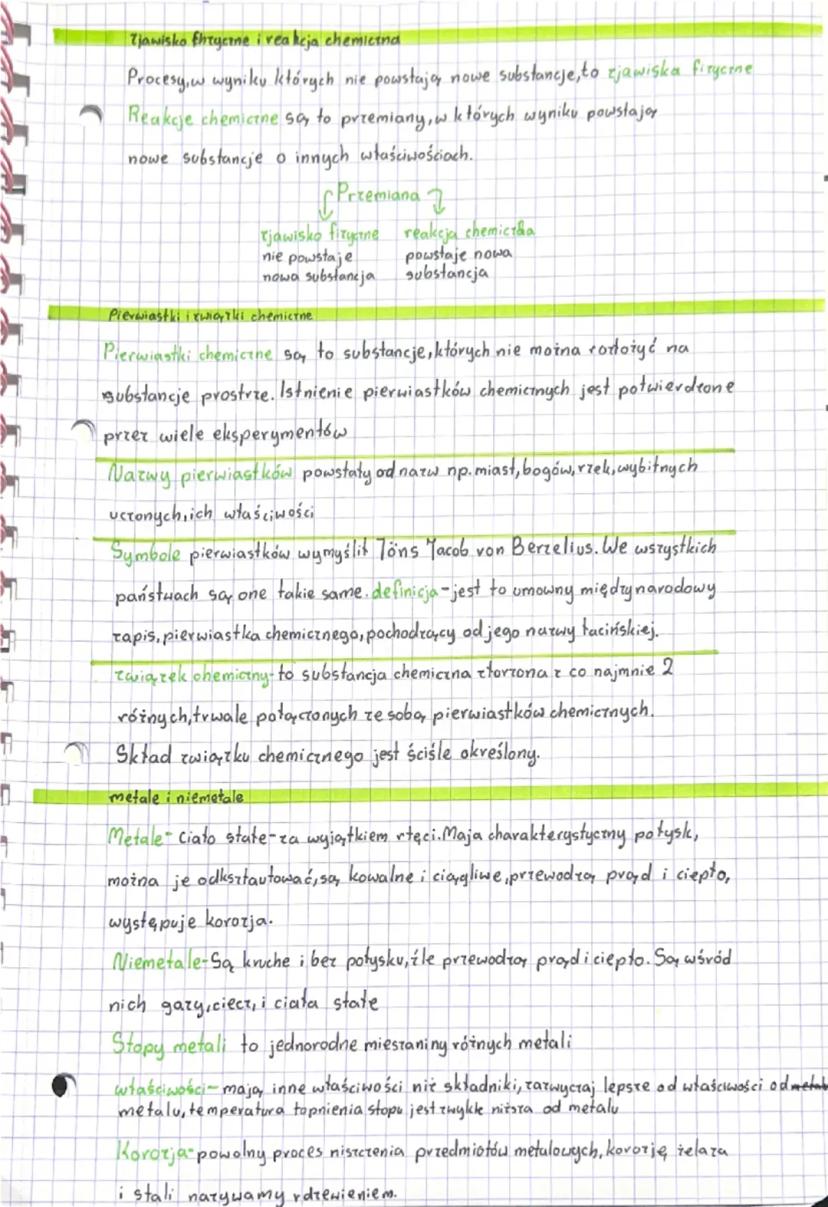 zjawisko fizyczne i reakcja chemiczna
Procesy, w wyniku których nie powstają nowe substancje, to zjawiska fizyczne
Reakcje chemiczne są to przemiany, w których wyniku powstają
nowe substancje o innych właściwościach.
Przemiana
zjawisko fizyczne reakcja chemiczna
nie powstaje powstaje nowa
nowa substancja substancja
Pierwiastki i związki chemiczne
Pierwiastki chemiczne są to substancje, których nie można rozłożyć na
substancje prostsze. Istnienie pierwiastków chemicznych jest potwierdzone
przez wiele eksperymentów
Nazwy pierwiastków powstały od nazw np. miast, bogów, rzek, wybitnych
uczonych, ich właściwości
Symbole pierwiastków wymyślił Jöns Jacob von Berzelius. We wszystkich
państwach są one takie same. definicja - jest to umowny międzynarodowy
zapis, pierwiastka chemicznego, pochodzący od jego nazwy łacińskiej.
związek chemiczny - to substancja chemiczna złożona z co najmnie 2
różnych, trwale połączonych ze sobą pierwiastków chemicznych.
Skład związku chemicznego jest ściśle określony.
metale i niemetale
Metale - Ciało stałe - za wyjątkiem rtęci. Maja charakterystyczny połysk,
można je odkształtować, są kowalne i ciągliwe, przewodzą prąd i ciepło,
występuje korozja.
Niemetale - Są kruche i bez połysku, źle przewodzą prąd i ciepło. Są wśród
nich gazy, ciecz, i ciała stałe
Stopy metali to jednorodne mieszaniny różnych metali
właściwości - mają inne właściwości niż składniki, zazwyczaj lepsze od właściwości od
metalu, temperatura topnienia stopu jest zwykle niższa od metalu
Korozja - powolny proces niszczenia przedmiotów metalowych, korozję żelaza
i stali nazywamy rdzewieniem.